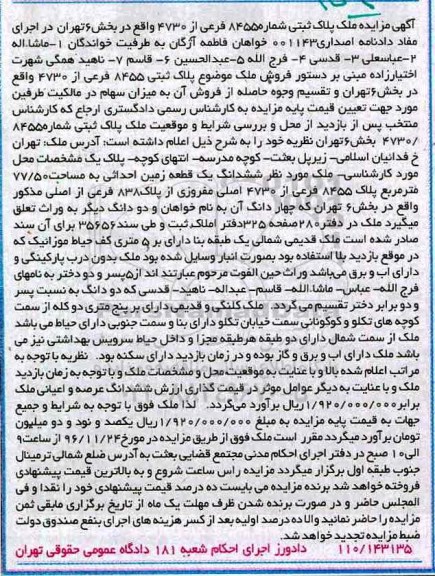 آگهی مزایده ملک پلاک ثبتی شماره ۸۴۵۵ فرعی از ۴۷۳۰ واقع در بخش ۶ تهران در اجرای
مفاد دادنامه اصداری ۰۰۱۱۴۳ خواهان فاطمه آژگان به طرفیت خواندگان ۱-ماشااله
۲-عباسعلی ۳- قدسی ۴- فرج الله ۵-عبدالحسین ۶- قاسم ۷- ناهید همگی شهرت
اختیارزاده مبنی بر دستور فروش ملک موضوع پلاک ثبتی ۸۴۵۵ فرعی از ۴۷۳۰ واقع
در بخش ۶ تهران و تقسیم وجوه حاصله از فروش آن به میزان سهام در مالکیت طرفین
مورد جهت تعیین قیمت پایه مزایده به کارشناس رسمی دادگستری ارجاع که کارشناس
منتخب پس از بازدید از محل و بررسی شرایط و موقعیت ملک پلاک ثبتی شماره ۸۴۵۵
/۴۷۳۰ بخش ۶ تهران نظریه خود را به شرح ذیل اعلام داشته است: آدرس ملک: تهران
خ فدائیان اسلامی- زیرپل بعثت- کوچه مدرسه- انتهای کوچه- پلاک یک مشخصات محل
مورد کارشناسی- ملک مورد نظر ششدانگ یک قطعه زمین احداثی به مساحت ۷۷/۵۰
مترمربع پلاک ۸۴۵۵ فرعی از ۴۷۳۰ اصلی مفروزی از پلاک ۸۳۸ فرعی از اصلی مذکور
واقع در بخش ۶ تهران که چهار دانگ آن به نام خواهان و دو دانگ دیگر به وراث تعلق
میگیرد ملک در دفتر ۲۸۰ صفحه ۳۲۵ دفتر املاک ثبت و طی سند ۳۵۶۵۶ برای آن سند
صادر شده است ملک قدیمی شمالی یک طبقه بنا دارای بر ۵ متری کف حیاط موزائیک که
در موقع بازدید بلا استفاده بود بصورت انبار وسایل شده بود ملک بدون درب پارکینگی و
دارای آب و برق می‌باشد وراث حین الفوت مرحوم عبارتند از ۵ پسر و دو دختر به نامهای
فرج الله- عباس- ماشاالله- قاسم- عبداله- ناهید- قدسی که دو دانگ به نسبت پسر
و دو برابر دختر تقسیم می گردد ملک کلنگی و قدیمی دارای بر پنج متری دو کله از سمت
کوچه های تکلو و کوکونانی سمت خیابان تکلو دارای بنا و سمت جنوبی دارای حیاط می باشد
ملک از سمت شمال دارای دو طبقه هرطبقه مجزا و داخل حیاط سرویس بهداشتی نیز می
باشد ملک دارای آب و برق و گاز بوده و در زمان بازدید دارای سکنه بود. نظریه با توجه به
مراتب اعلام شده بالا و با عنایت به موقعیت محل و مشخصات ملک و با توجه به زمان بازدید
ملک و با عنایت به دیگر عوامل موثر در قیمت گذاری ارزش ششدانگ عرصه و اعیانی ملک
برابر ۱/۹۲۰/۰۰۰/۰۰۰ ریال برآورد می‌گردد. لذا ملک فوق با توجه به شرایط و جمیع
جهات به قیمت پایه مزایده به مبلغ ۱/۹۲۰/۰۰۰/۰۰۰ ریال یکصد و نود و دو میلیون
تومان برآورد میگردد مقرر است ملک فوق از طریق مزایده در مورخ ۹۶/۱۱/۲۴ از ساعت ۹
الی ۱۰ صبح در دفتر اجرای احکام مدنی مجتمع قضایی بعثت به آدرس ضلع شمالی ترمینال
جنوب طبقه اول برگزار میگردد مزایده راس ساعت شروع و به بالاترین قیمت پیشنهادی
فروخته خواهد شد برنده مزایده می بایست ده درصد قیمت پیشنهادی خود را نقدا و فی
المجلس حاضر و در صورت برنده شدن ظرف مهلت یک ماه از تاریخ برگزاری مابقی ثمن
مزایده را حاضر نمائید والا ده درصد اولیه بعد از کسر هزینه های اجرای بنفع صندوق دولت
ضبط مزایده تجدید خواهد شد.
۱۱۰/۱۴۳۱۳۵ دادورز اجرای احکام شعبه ۱۸۱ دادگاه عمومی حقوقی تهران